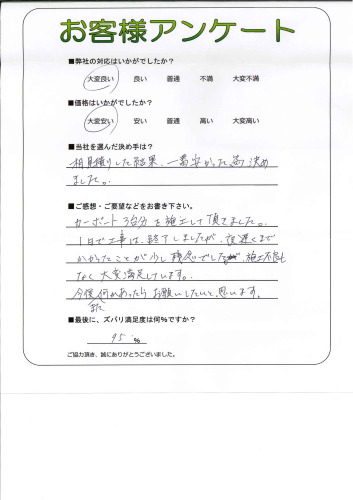 お客様アンケート
■弊社の対応はいかがでしたか?
大変良い 良い 普通 不満 大変不満
■価格はいかがでしたか?
大変安い 安い 普通 高い 大変高い
■当社を選んだ決め手は?
相見積りした結果、一番安かった為 決め
ました。
■ご感想・ご要望などをお書き下さい。
カーポート3台分を施工して頂きました。
1日で工事は、終了しましたが、夜遅くまで
かかったことが少し残念でしたが 施工不良も
なく大変満足しています。
今後何かあったらお願いしたいと思います。
また
■最後に、ズバリ満足度は何%ですか?
95 %
ご協力頂き、誠にありがとうございました。